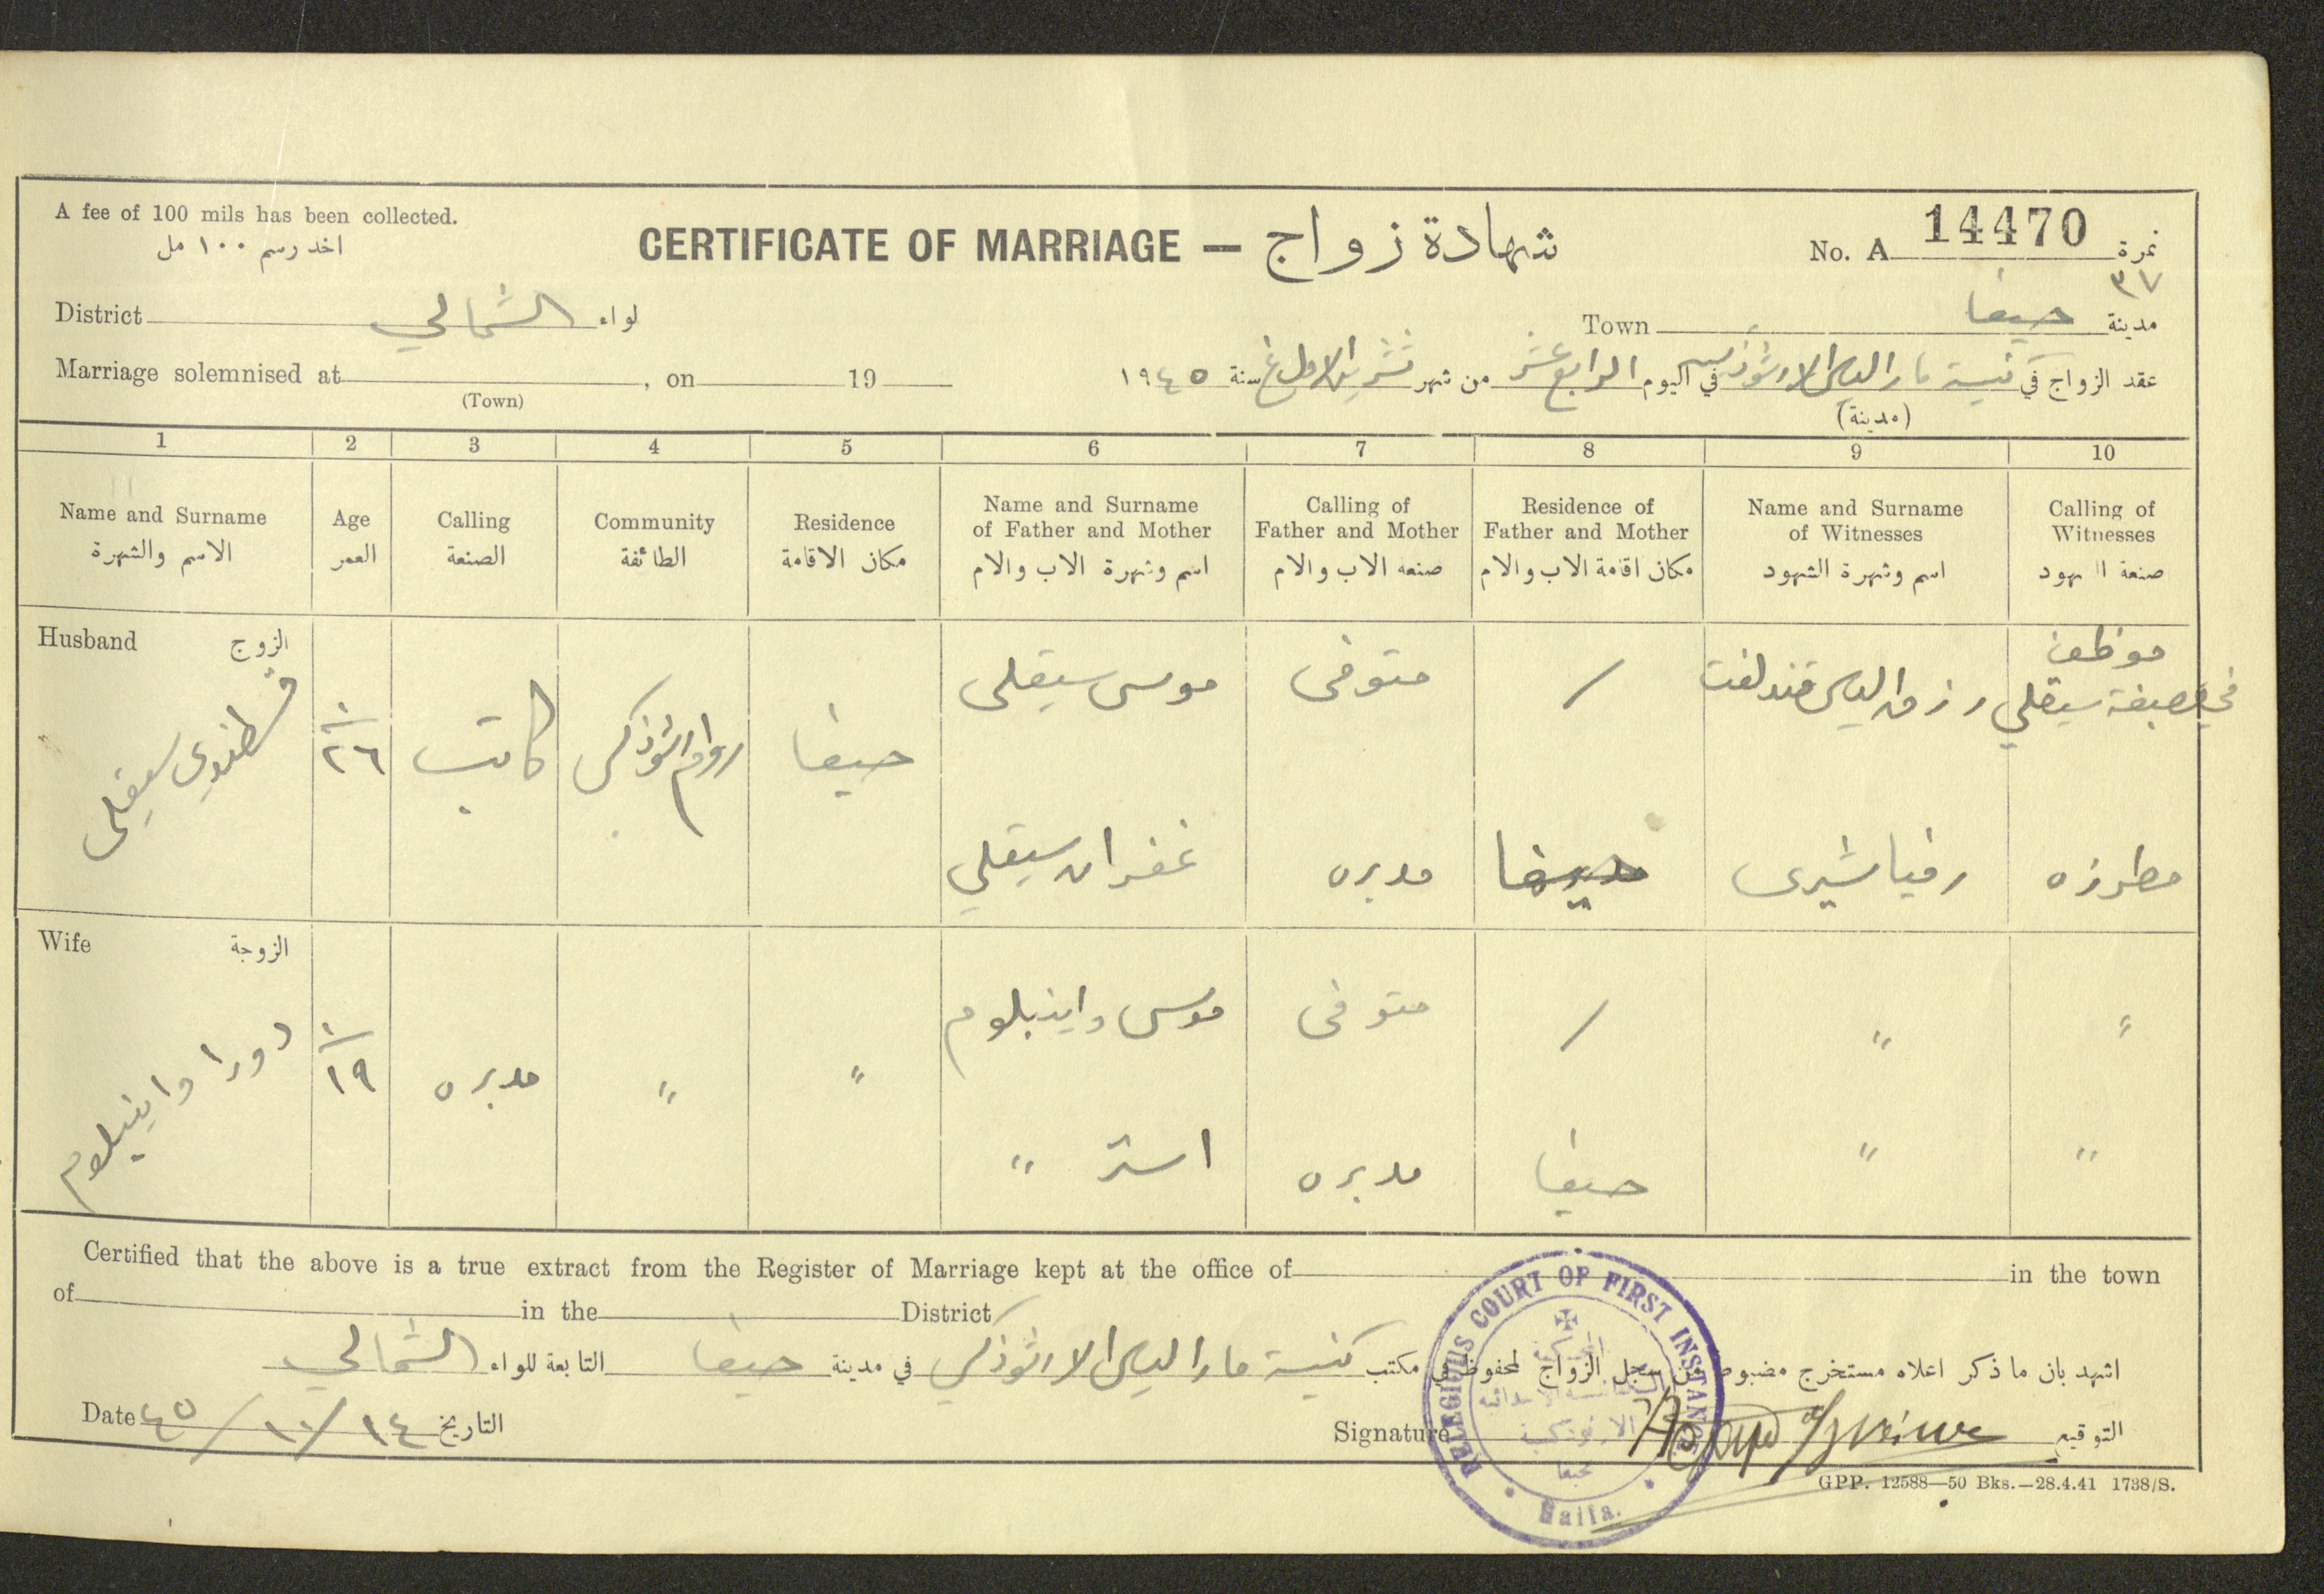 A fee of 100 mils has been collected.
اخد رسم ١٠٠ مل
CERTIFICATE OF MARRIAGE — شهادة زواج
No. A 14470 نمرة
٣٧
District الشمالي لواء
Town حيفا مدينة
Marriage solemnised at , on 19
(Town)
عقد الزواج في كنيسة مار الياس الارثوذكسية في اليوم الرابع عشر من شهر تشرين الاول سنة ١٩٤٥
(مدينة)
1 2 3 4 5 6 7 8 9 10
Name and Surname
الاسم والشهرة
Age
العمر
Calling
الصنعة
Community
الطائفة
Residence
مكان الاقامة
Name and Surname
of Father and Mother
اسم وشهرة الاب والام
Calling of
Father and Mother
صنعه الاب والام
Residence of
Father and Mother
مكان اقامة الاب والام
Name and Surname
of Witnesses
اسم وشهرة الشهود
Calling of
Witnesses
صنعة الشهود
Husband الزوج
قسطندي سيقلي
٢٦
كاتب
روم ارثوذكس
حيفا
موسى سيقلي
متوفى
/
رزق الياس قندلفت
موظف
في مصبغة سيقلي
غفران سيقلي
مدبره
حيفا
مطرزه
Wife الزوجة
دورا واينبلوم
١٩
مدبره
"
"
موسى واينبلوم
متوفى
/
"
"
استر "
مدبره
حيفا
"
"
Certified that the above is a true extract from the Register of Marriage kept at the office of in the town
of in the District
اشهد بان ما ذكر اعلاه مستخرج مضبوط من سجل الزواج المحفوظ في مكتب كنيسة مار الياس الارثوذكس في مدينة حيفا التابعة للواء الشمالي
Date ٤٥/١٠/١٤ التاريخ
Signature التوقيع
RELEGIOUS COURT OF FIRST INSTANCE
Haifa.
GPP. 12588—50 Bks.—28.4.41 1738/S.